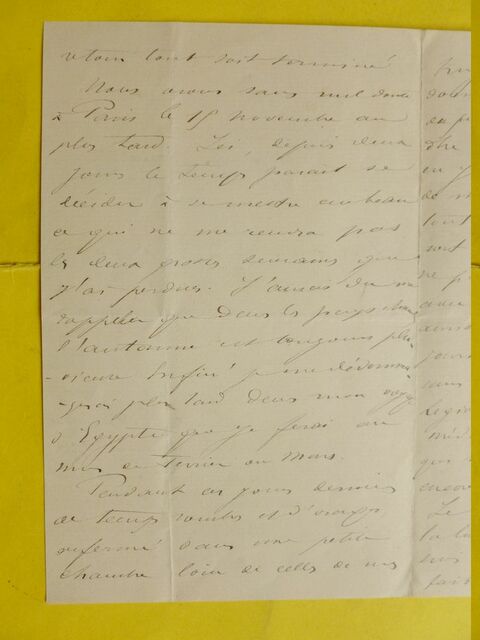 retour tout soit terminé
Nous serons sans nul doute
à Paris le 15 novembre au
plus tard. Ici, depuis deux
jours le temps parait se
décider à se mettre au beau
ce qui ne me rendra pas
les deux grosses semaines que
j'ai perdues. J'aurais dû me
rappeler que dans les pays chauds
l'automne est toujours plu-
-vieuse. Enfin! je me dédomma-
-gerai plus tard dans mon voyage
d'Egypte que je ferai au
mois de Février ou Mars.
Pendant ces jours derniers
de temps sombre et d'orages
renfermé dans une petite
chambre loin de celles de nos